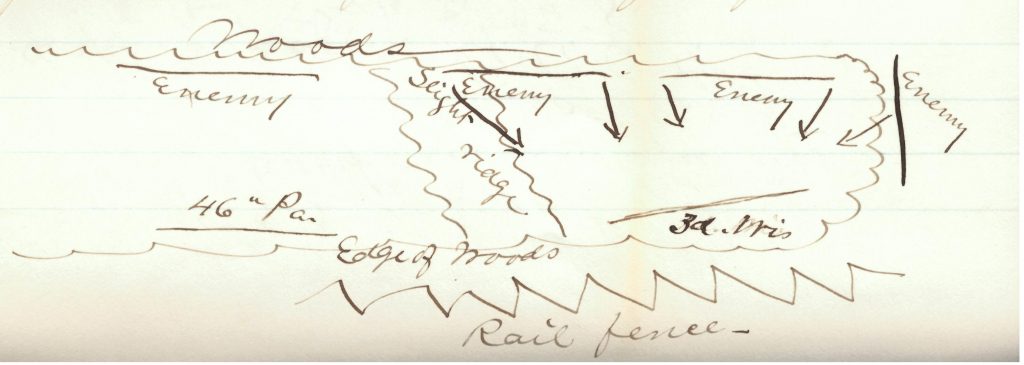 Woods
Enemy
Slight
ridge
Enemy
Enemy
Enemy
46" Pa.
3d. Wis
Edge of Woods
Rail fence -